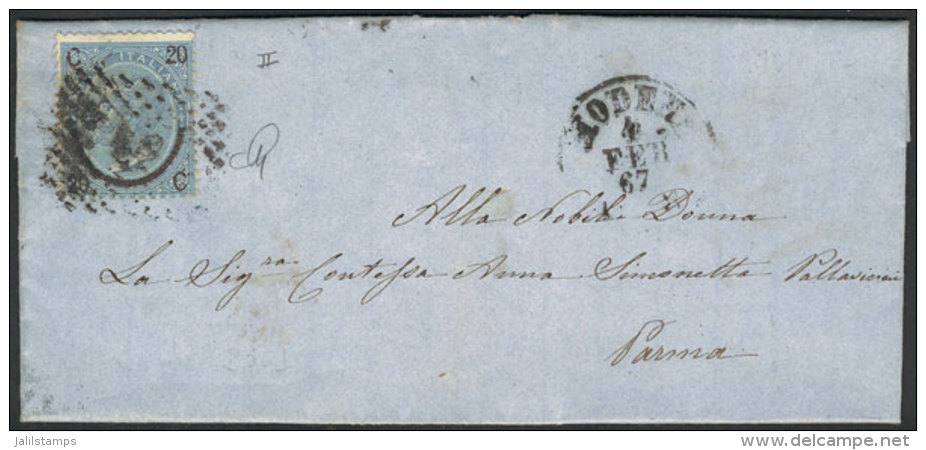 C 20
ITALIANO
II
20 C
MODENA
4
FEB
67
Alla Nobile Donna
La Sig.ra Contessa Anna Simonetta Pallavicini
Parma
jalilstamps
www.delcampe.net